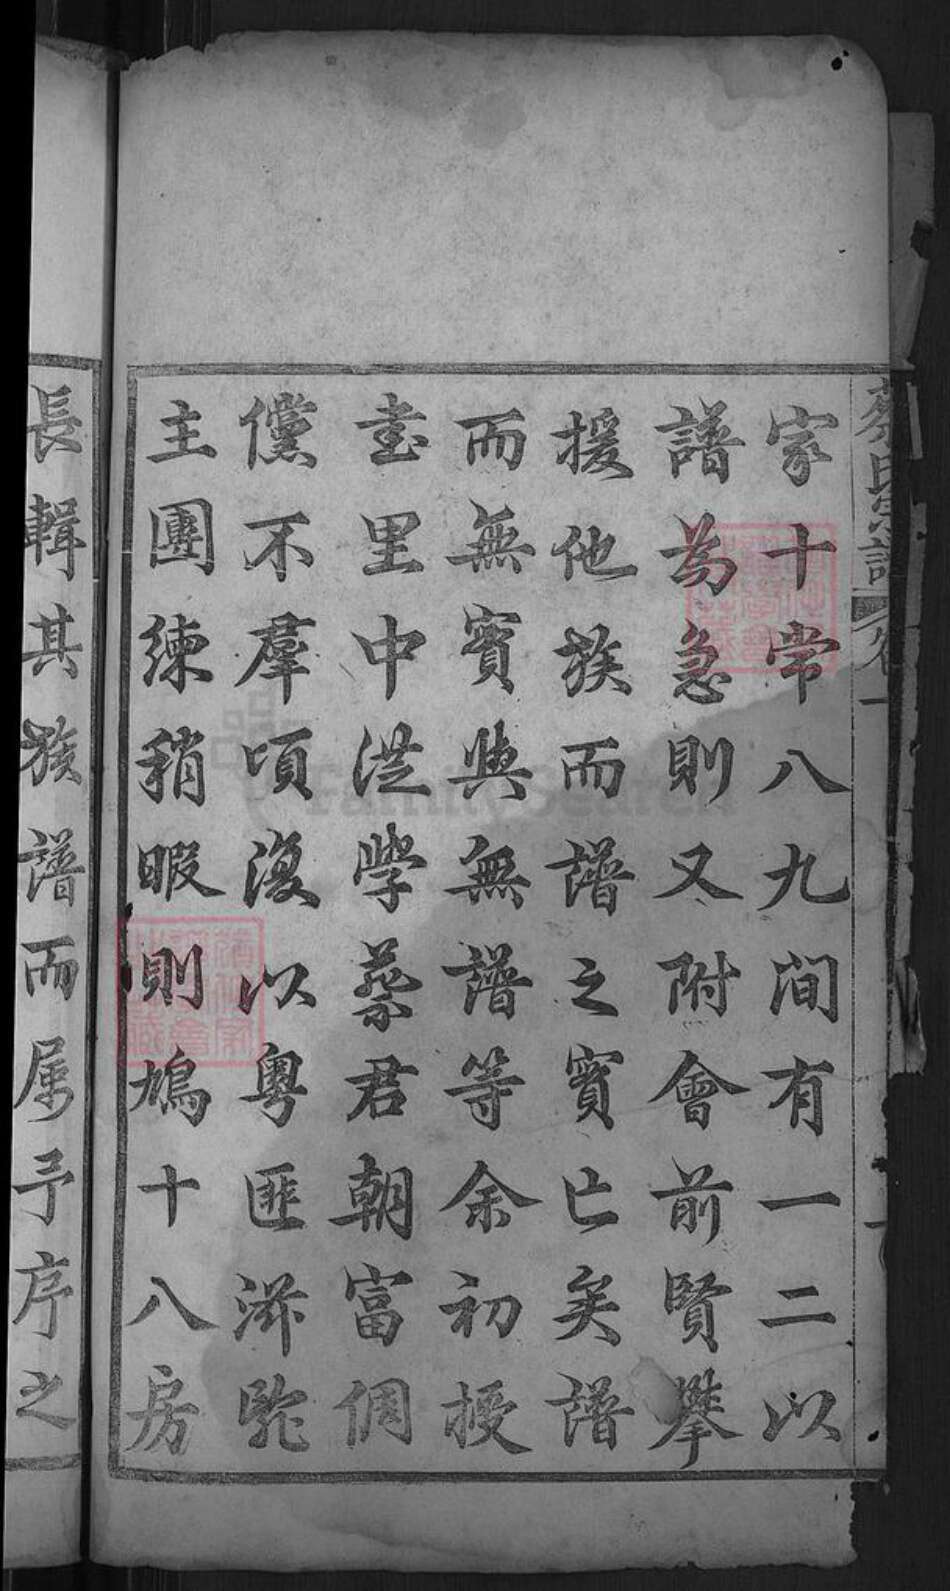 蔡氏宗譜
卷一
家十常八九間有一二以
譜為急則又附會前賢攀
援他族而譜之實亡矣譜
而無實與無譜等余初授
書里中洪學蔡君朝富倜
儻不羣頃復以粵匪滋
主團練稍暇則鳩十八房
長輯其族譜而属予序之
FamilySearch